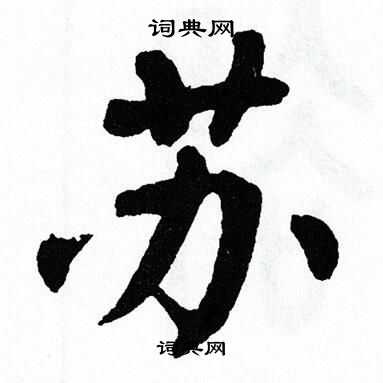 词典网
苏
词典网